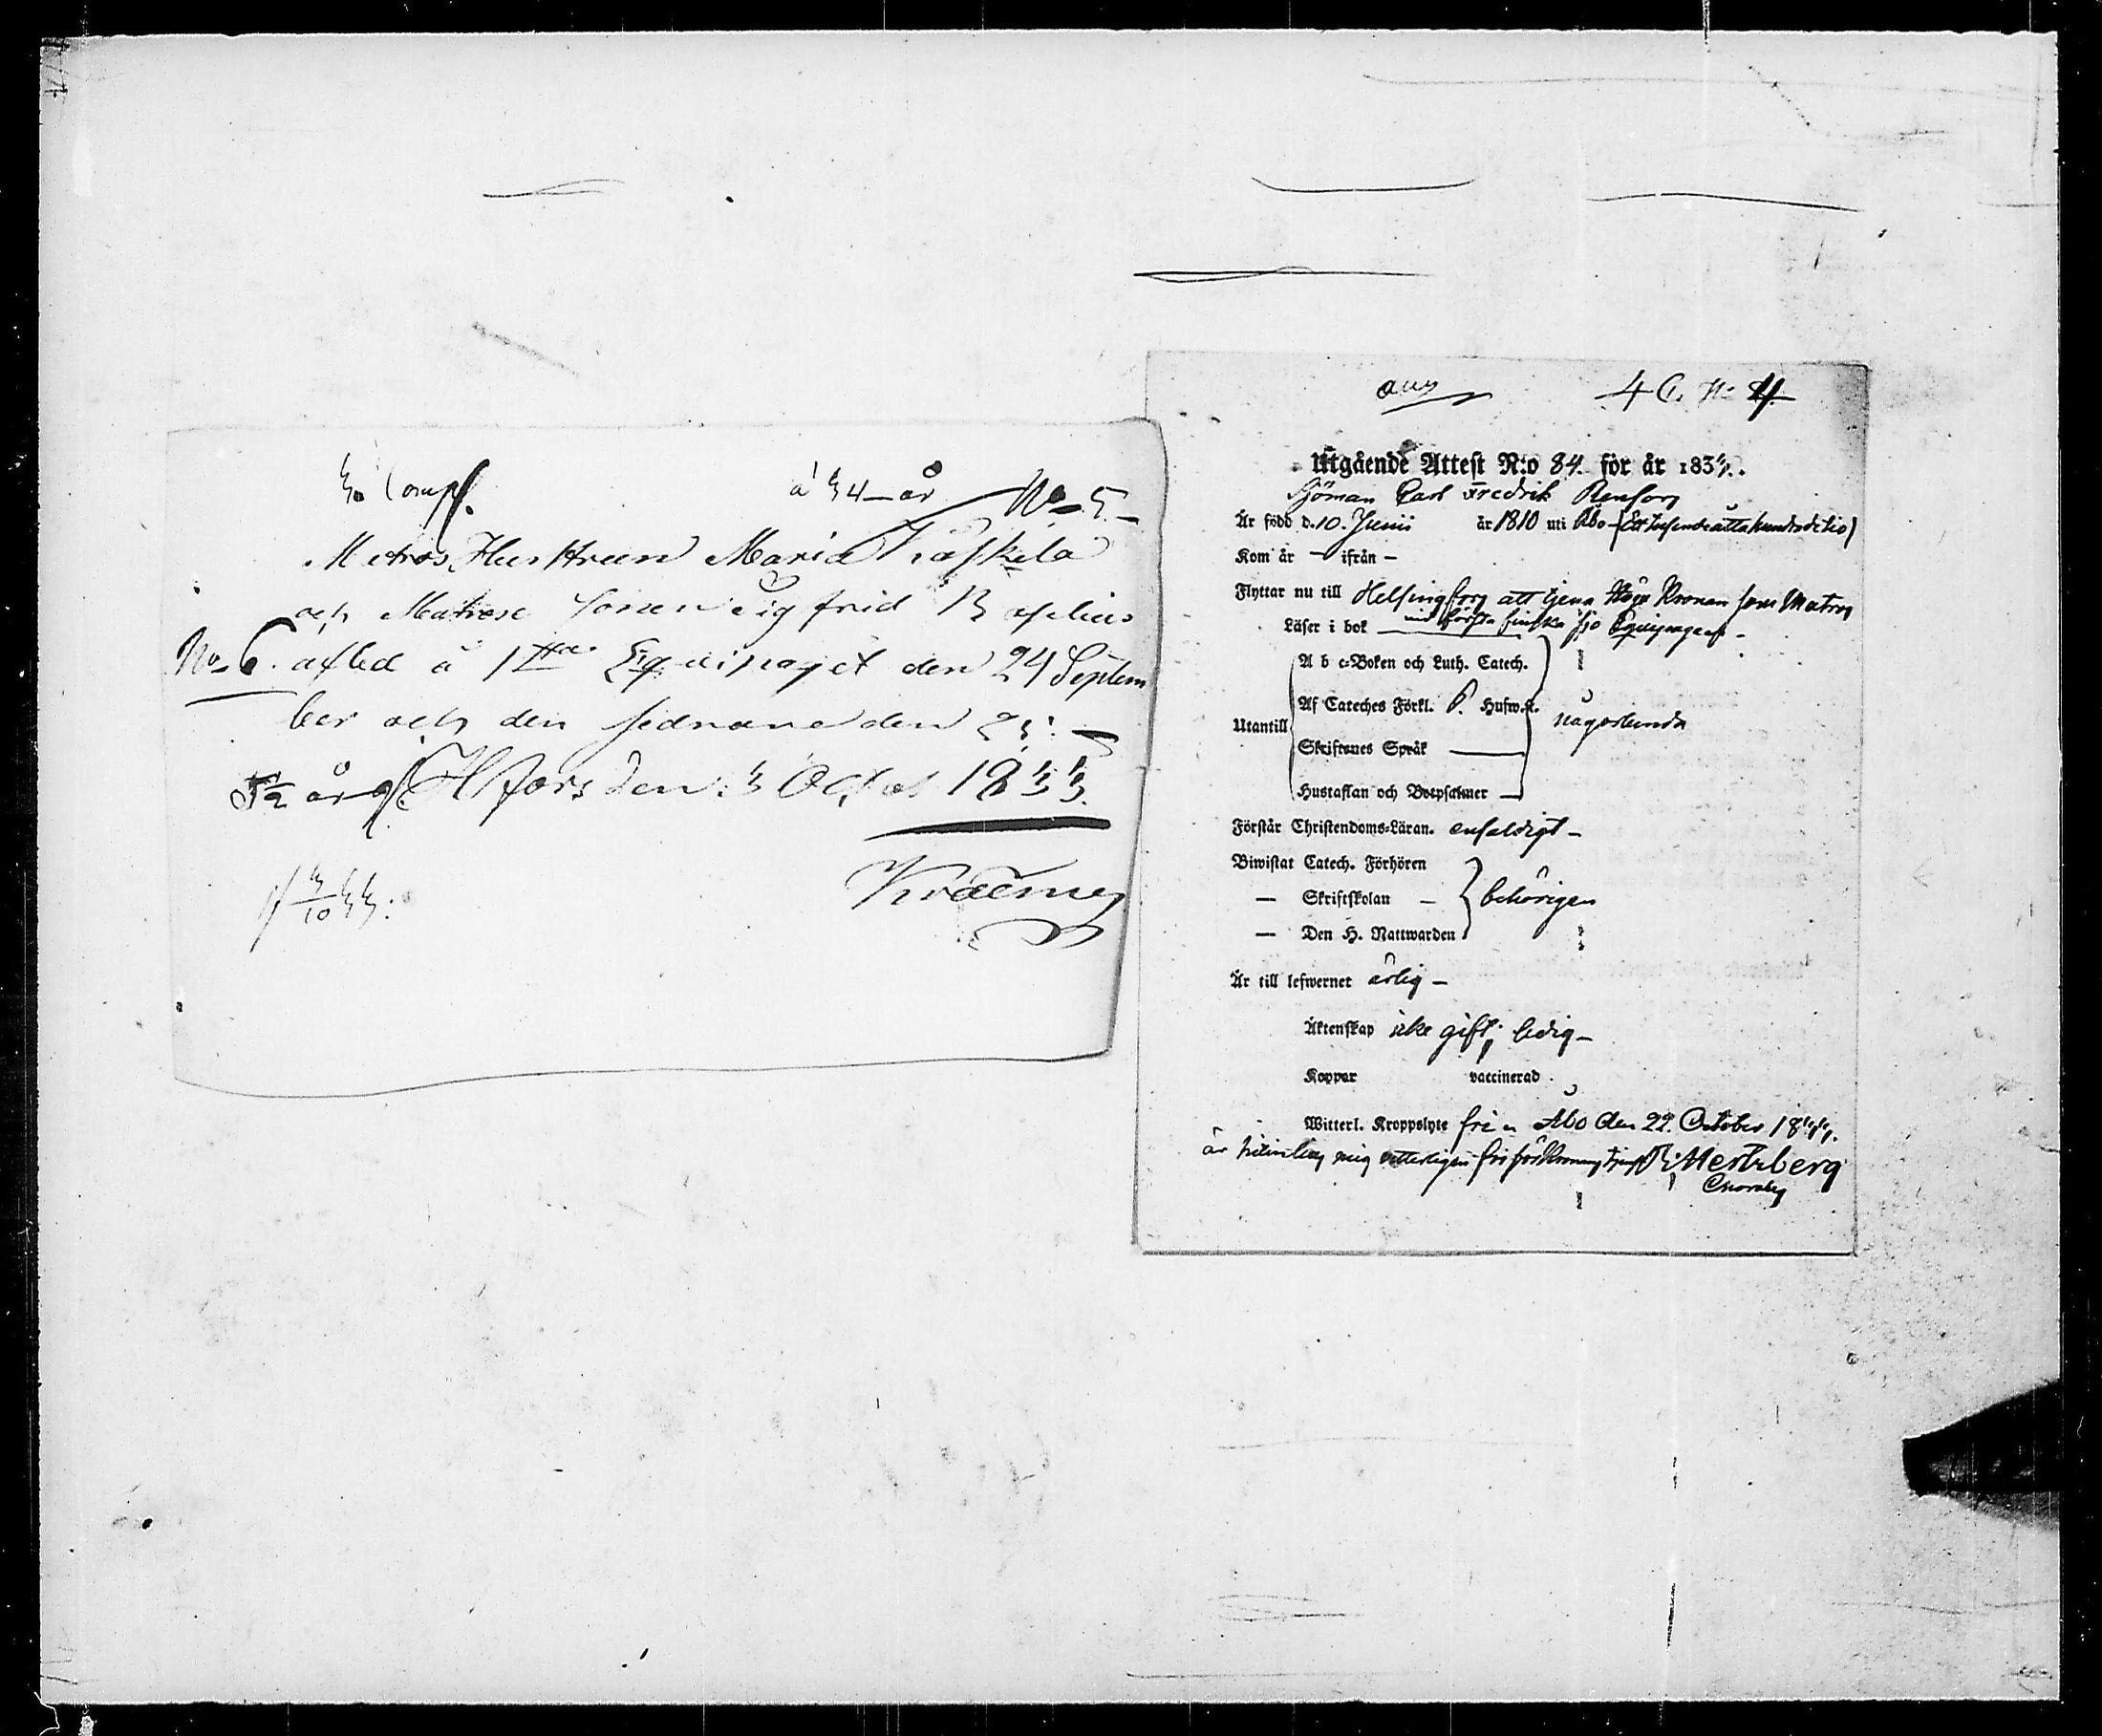 3. Comp. á 34 år No 5.
Matros Hustrun Maria Kaskela
och Matrose Sonen Sigfrid Baselius
No 6. afled å 1sta Equipaget den 24 Septem
ber och den sednare den 25.
½ år H:fors den 3 Octob 1833.
Kraemer
3/10 33.
4 C. N: 4.
Utgående Attest N:o 84. för år 1833.
Sjöman Carl Fredrik Renfors
Är född d. 10. Junii år 1810 uti Åbo - (Ett tusende åttahundradetio)
Kom år - ifrån -
Flyttar nu till Helsingfors att tjena Höga Kronan som Matros
vid första finska sjö Equipaget -
Läser i bok
A b c-Boken och Luth. Catech.
Af Cateches Förkl. P. Hufw.st.
någorlunda
Utantill
Skriftenes Språk
Hustaflan och Botpsalmer
Förstår Christendoms-Läran. enfaldigt -
Biwistat Catech. Förhören
— Skriftskolan — behörigen
— Den H. Nattwarden
Är till lefwernet ärlig -
Äktenskap icke gift, ledig -
Koppor vaccinerad
Witterl. Kroppslyte fri Åbo den 22. October 1833.
är mig vitterligen fri för Kronans tjenst